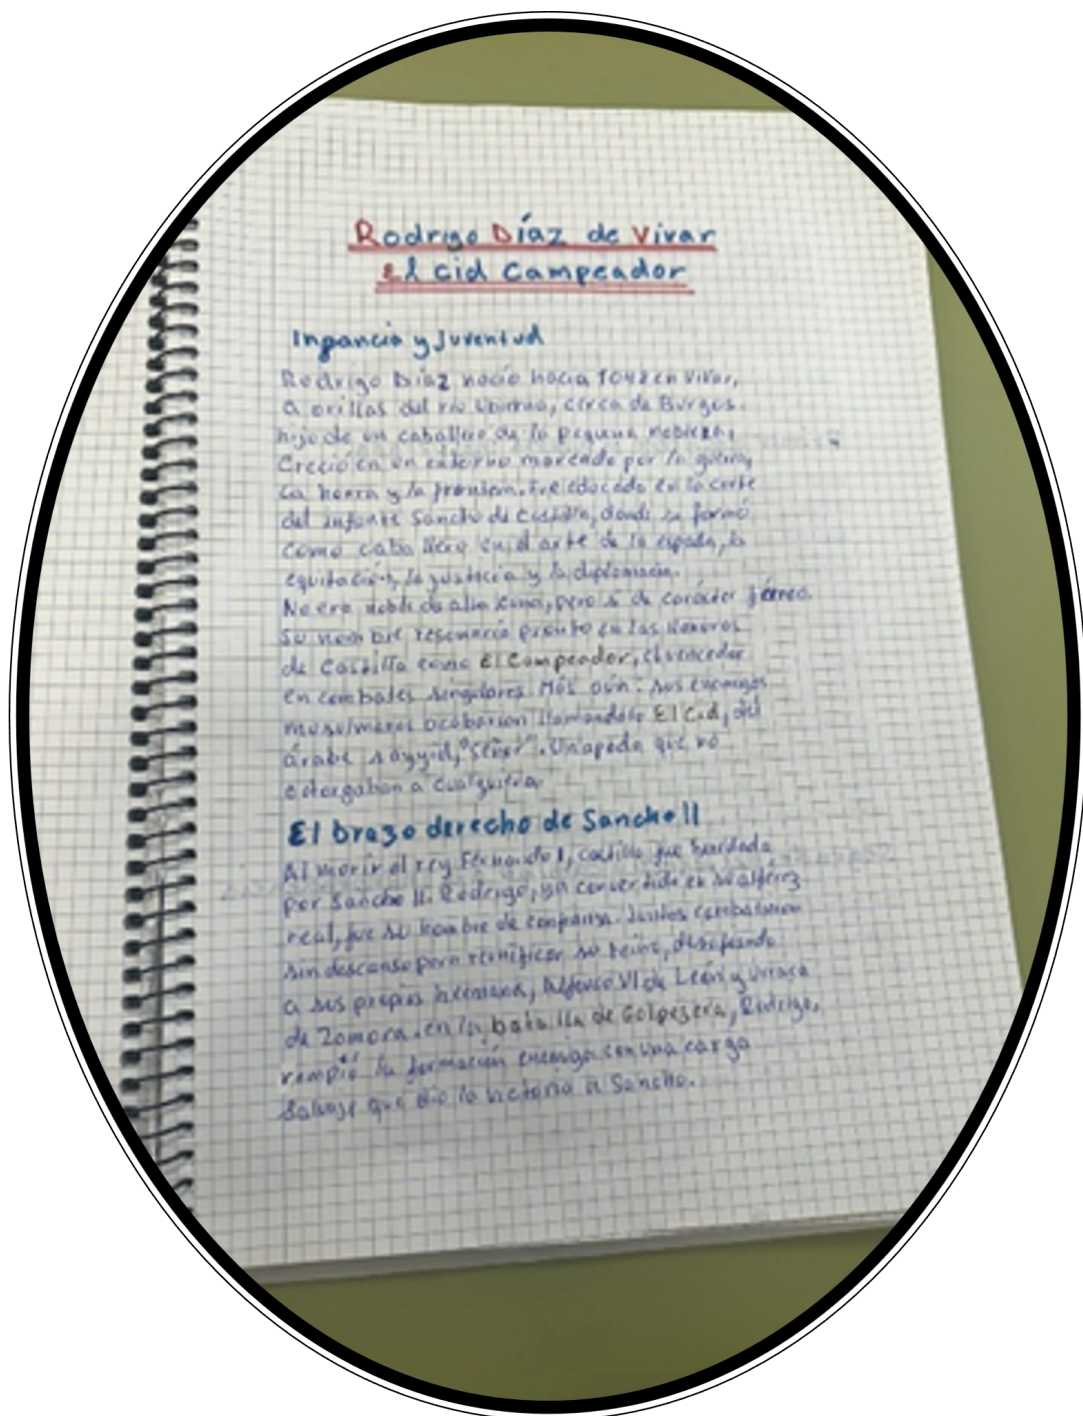 Rodrigo Díaz de Vivar
El Cid Campeador
Infancia y Juventud
Rodrigo Díaz nació hacia 1048 en Vivar,
a orillas del río Ubierna, cerca de Burgos.
hijo de un caballero de la pequeña nobleza,
Creció en un entorno marcado por la guerra,
La honra y la frontera. Fue educado en la corte
del infante Sancho de Castilla, donde se formó
como caballero en el arte de la espada, la
equitación, la justicia y la diplomacia.
No era noble de alta cuna, pero sí de carácter férreo.
Su nombre resonaría pronto en las
de Castilla como El Campeador, el vencedor
en combates singulares. Más aún: sus enemigos
musulmanes acabarían llamándole El Cid, del
árabe sayyid, "señor". Un apodo que no
otorgaban a cualquiera.
El brazo derecho de Sancho II
Al morir el rey Fernando I, Castilla fue heredada
por Sancho II. Rodrigo, ya convertido en su alférez
real, fue su hombre de confianza. Juntos combatieron
sin descanso para reunificar su reino, desafiando
a sus propios hermanos, Alfonso VI de León y Urraca
de Zamora. en la batalla de Golpejera, Rodrigo,
rompió la formación enemiga con una carga
Salvaje que dio la victoria a Sancho.